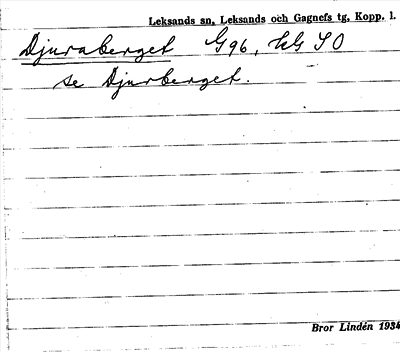 Leksands sn, Leksands och Gagnefs tg, Kopp. l.
Djuraberget G96, SO
se Djurberget.
Bror Lindén 1934